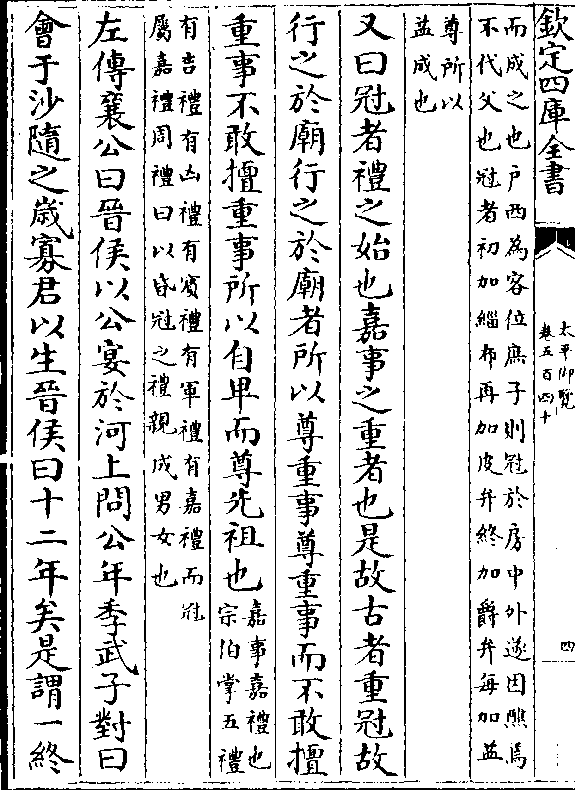 欽定四庫全書
太平御覽
卷五百四十
四
而成之也戶西為客位庶子則冠於房中外遂因醮焉
不代父也冠者初加緇布再加皮弁終加爵弁每加益
尊所以
益成也
又曰冠者禮之始也嘉事之重者也是故古者重冠故
行之於廟行之於廟者所以尊重事尊重事而不敢擅
重事不敢擅重事所以自卑而尊先祖也
嘉事嘉禮也
宗伯掌五禮
有吉禮有凶禮有賓禮有軍禮有嘉禮而冠
屬嘉禮周禮曰以昏冠之禮親成男女也
左傳襄公曰晉侯以公宴於河上問公年季武子對曰
會于沙隨之歲寡君以生晉侯曰十二年矣是謂一終